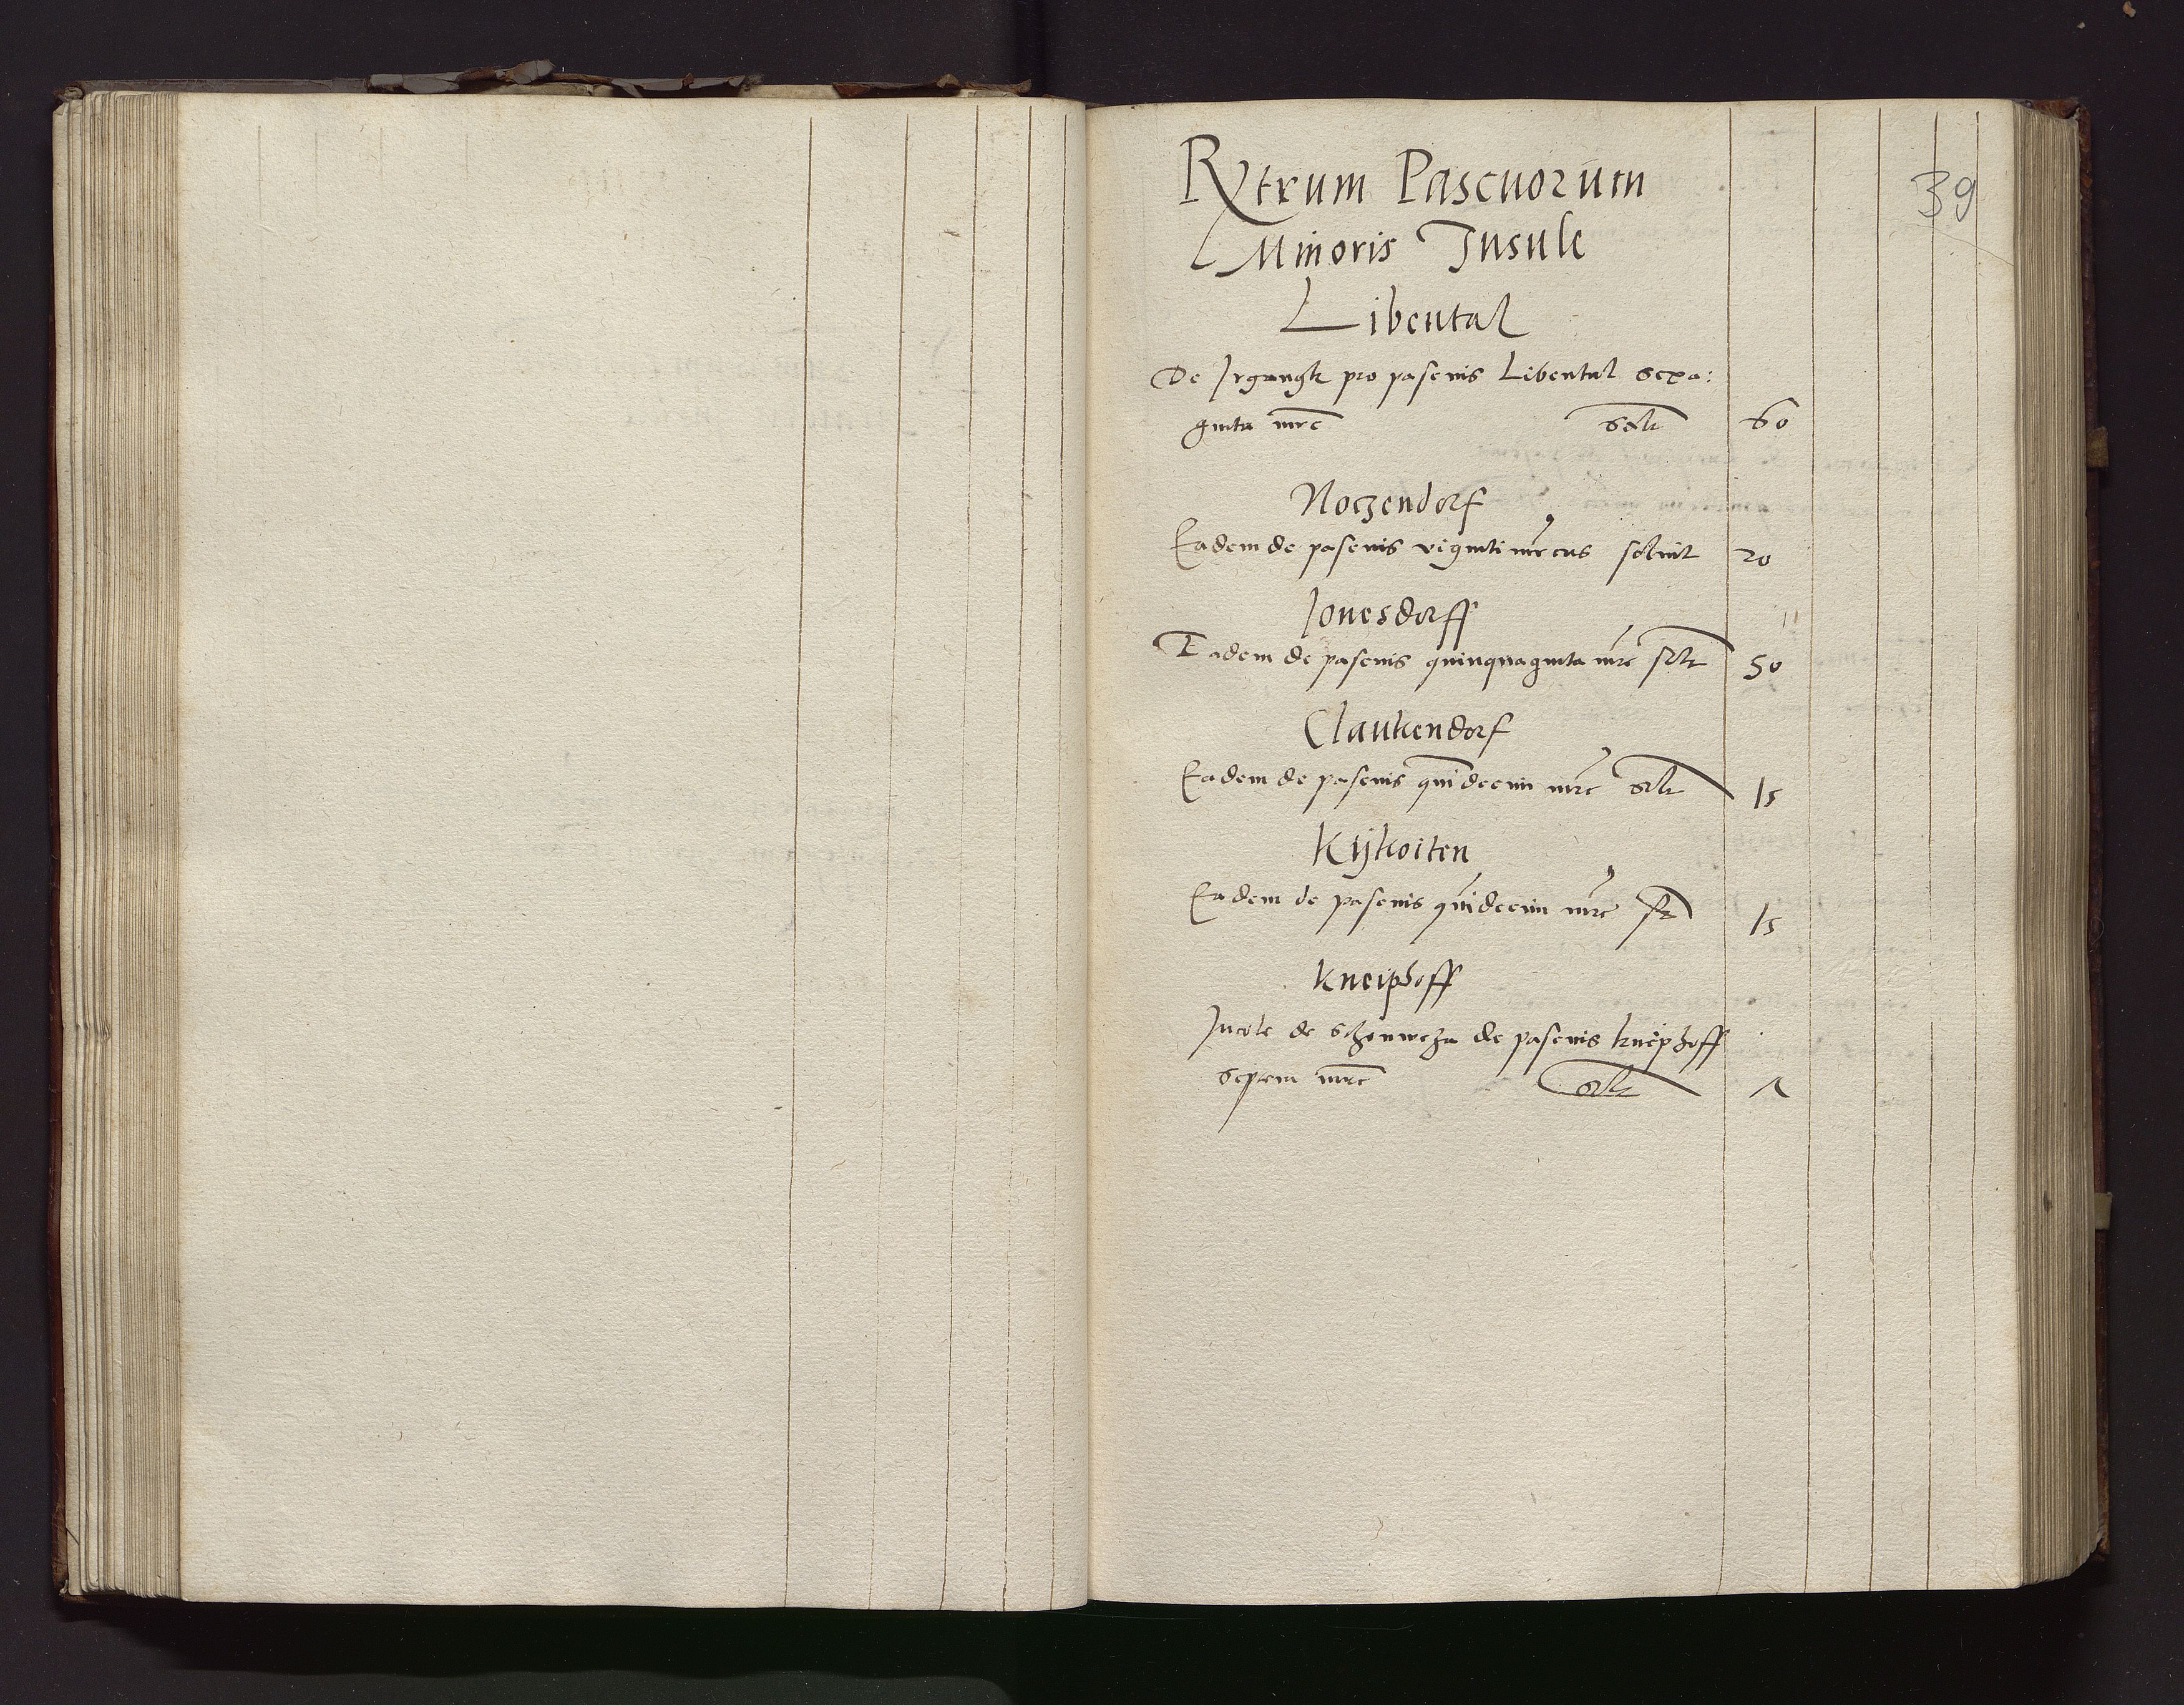 39
Rxtrum Pascuorum
Minoris Insule
Libental
De Irgangk pro pascuis Libental sexa:
ginta mrc solt 60
Noczendorf
Eadem de pascuis viginti mrcas soluit 20
Jonesdorff
Eadem de pascuis quinquaginta mrc solt 50
Claukendorf
Eadem de pascuis quindecim mrc solt 15
Kijkoiten
Eadem de pascuis quindecim mrc st 15
Kneiphoff
Incole de Schonweza de pascuis kneiphoff
septem mrc solt 7